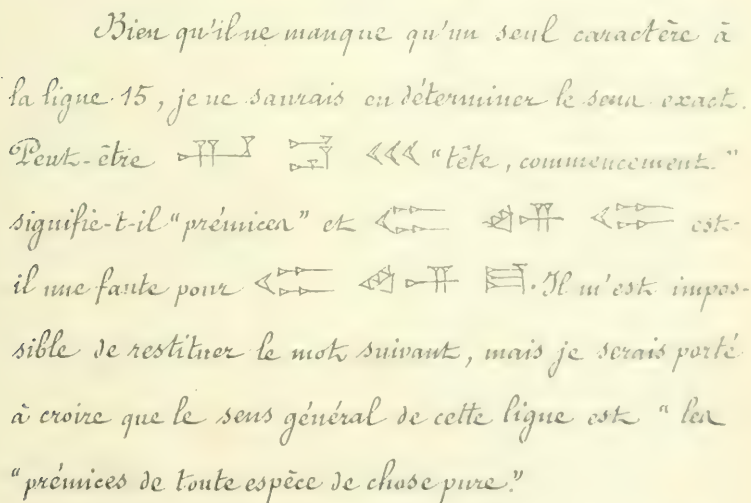 Bien qu'il ne manque qu'un seul caractère à
la ligne 15, je ne saurais en déterminer le sens exact.
Peut-être 𒌋𒌋𒌋 "tête, commencement"
signifie-t-il "prémices" et est-
il une faute pour . Il m'est impos-
sible de restituer le mot suivant, mais je serais porté
à croire que le sens général de cette ligne est "les
"prémices de toute espèce de chose pure."